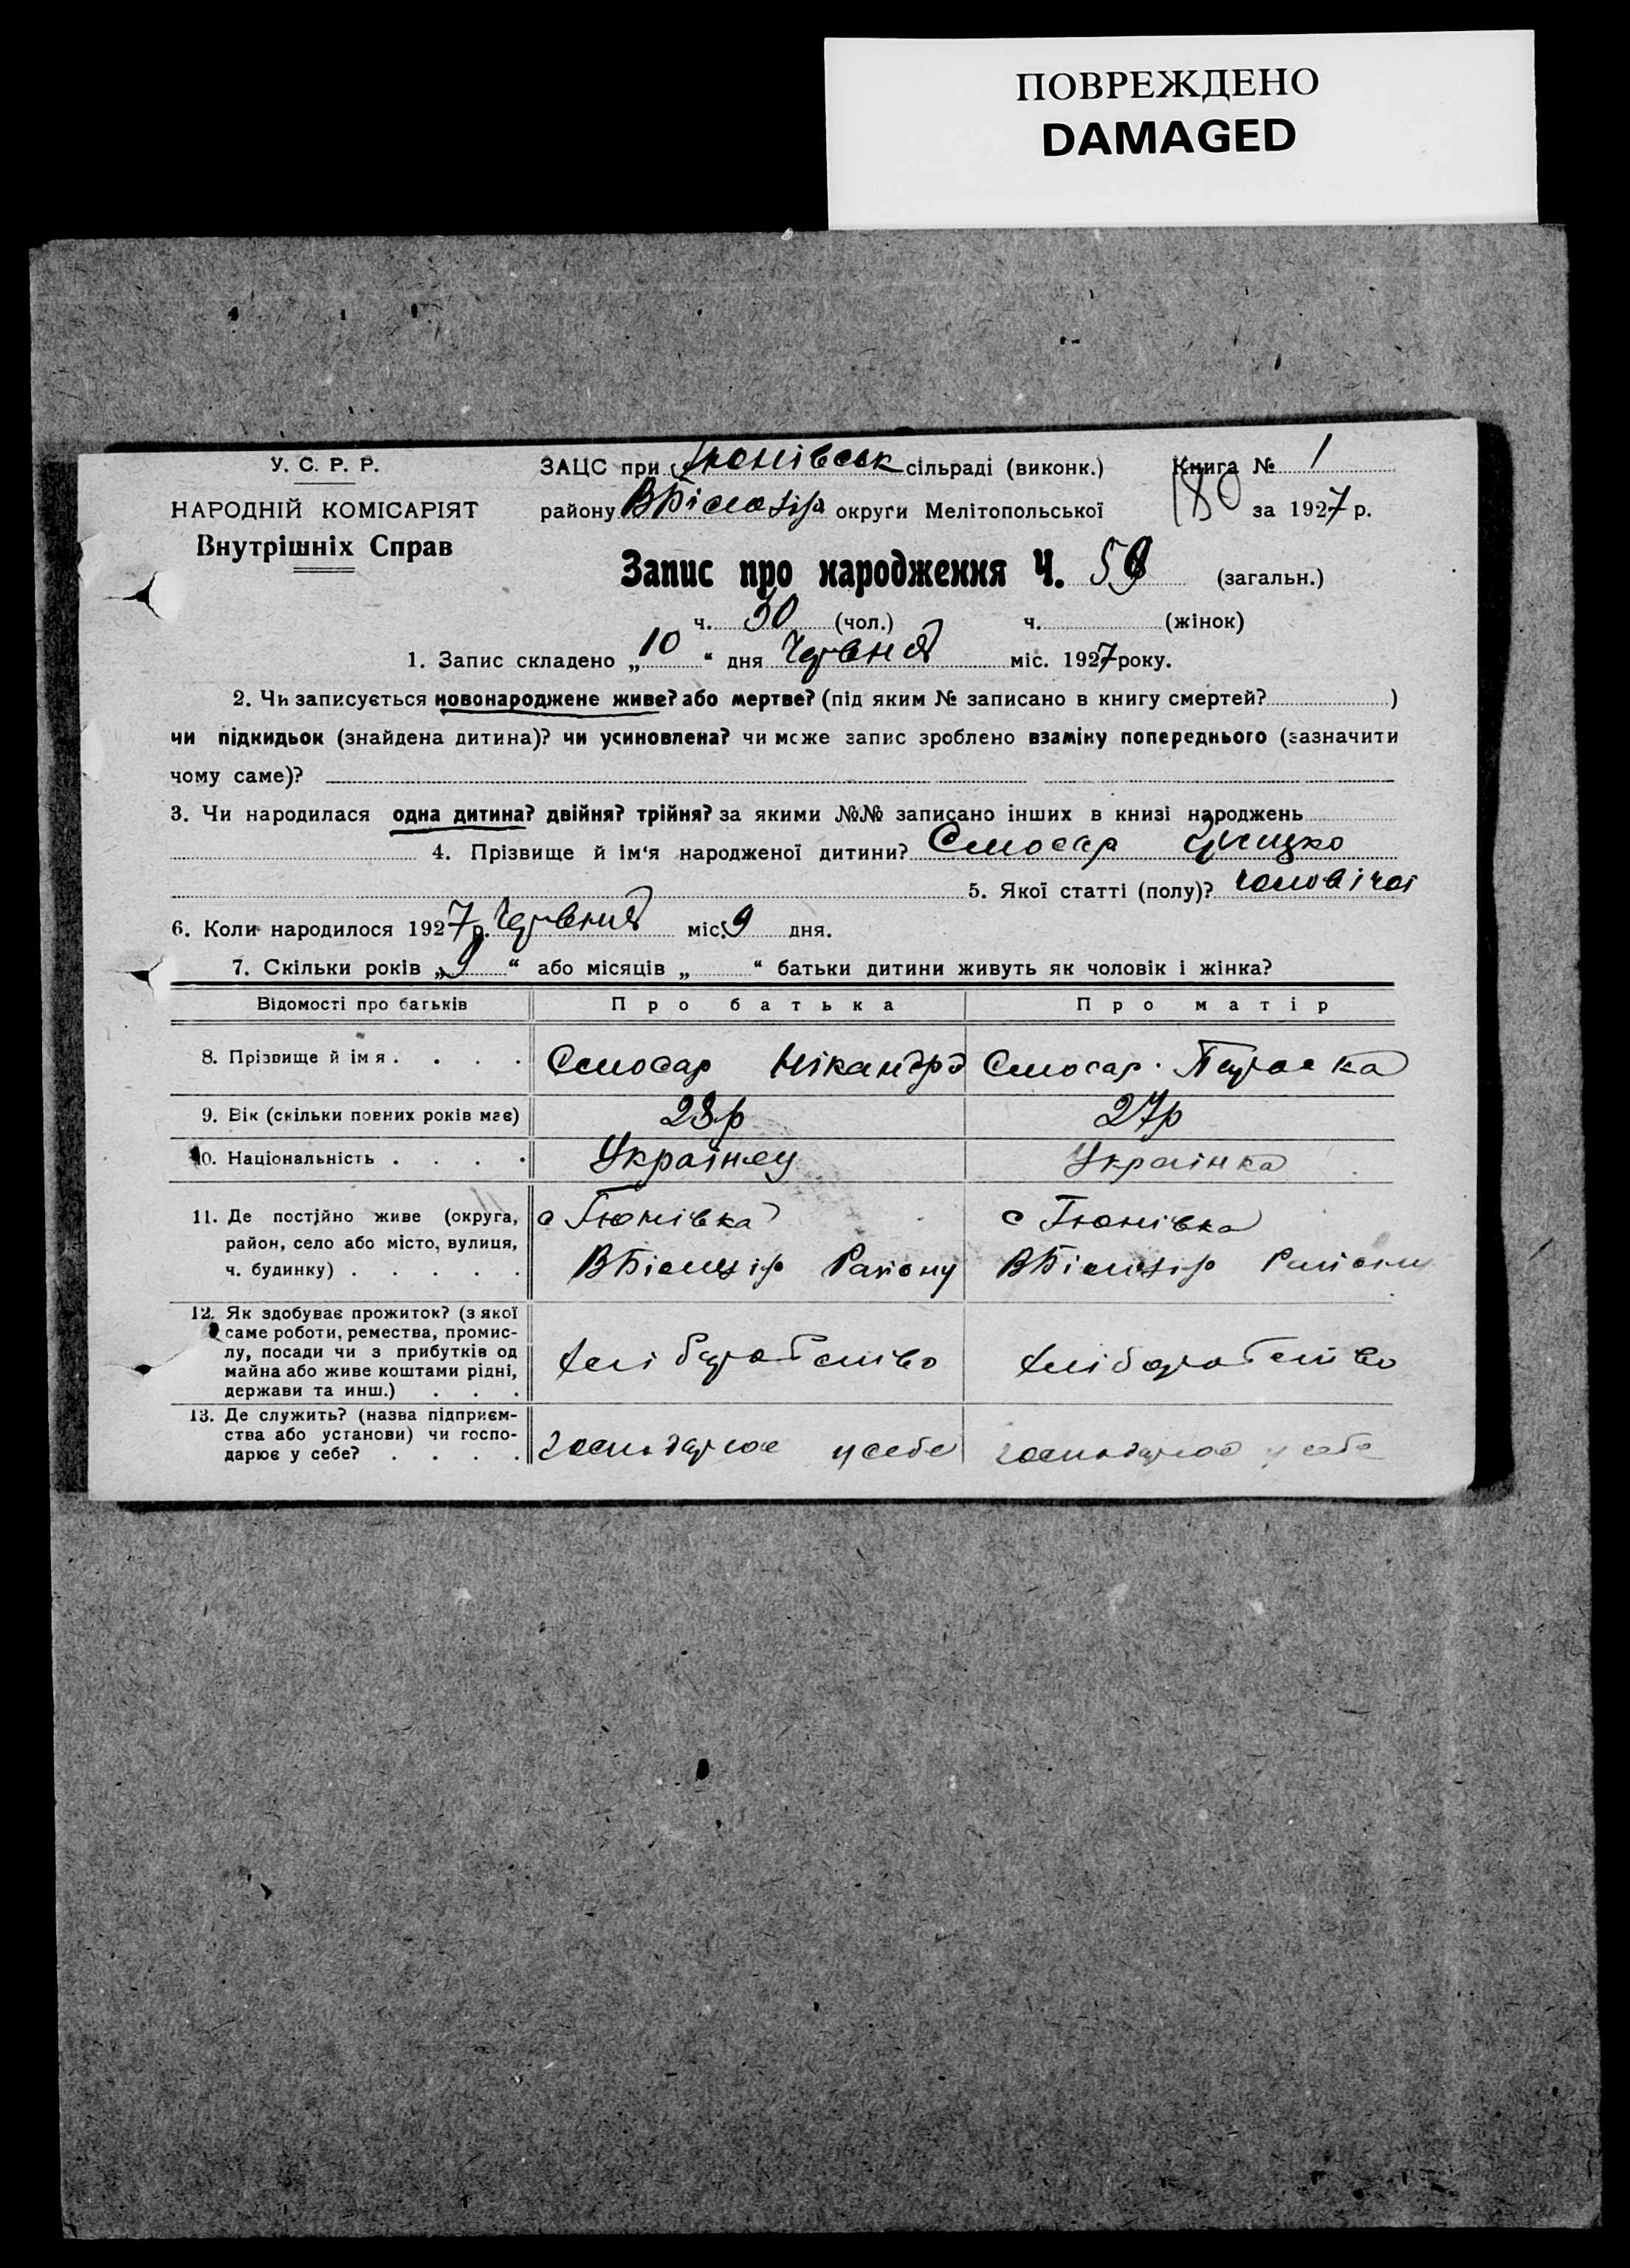 ПОВРЕЖДЕНО
DAMAGED
У. С. Р. Р.
НАРОДНІЙ КОМІСАРІЯТ
Внутрішніх Справ
ЗАЦС при Тюнівськ сільраді (виконк.)
району ВБілозір округи Мелітопольської
Книга № 1
180 за 1927 р.
Запис про народження Ч. 59 (загальн.)
ч. 30 (чол.) ч. (жінок)
1. Запис складено „10“ дня Червня міс. 1927 року.
2. Чи записується новонароджене живе? або мертве? (під яким № записано в книгу смертей? )
чи підкидьок (знайдена дитина)? чи усиновлена? чи може запис зроблено взаміну попереднього (зазначити
чому саме)?
3. Чи народилася одна дитина? двійня? трійня? за якими №№ записано інших в книзі народжень
4. Прізвище й ім'я народженої дитини? Слюсар Грицко
5. Якої статті (полу)? чоловічої
6. Коли народилося 1927 р. Червня міс. 9 дня.
7. Скільки років „9“ або місяців „ “ батьки дитини живуть як чоловік і жінка?
Відомості про батьків Про батька Про матір
8. Прізвище й імя . . . . Слюсар Нікандр Слюсар Параска
9. Вік (скільки повних років має) 28р 27р
10. Національність . . . . Українец Українка
11. Де постійно живе (округа,
район, село або місто, вулиця,
ч. будинку) . . . . .
с Тюнівка
ВБілозір Району
с Тюнівка
ВБілозір Району
12. Як здобуває прожиток? (з якої
саме роботи, ремества, промис-
лу, посади чи з прибутків од
майна або живе коштами рідні,
держави та инш.) . . .
хліборобство
хліборобство
13. Де служить? (назва підприєм-
ства або установи) чи госпо-
дарює у себе? . . . .
господарює у себе
господарює у себе